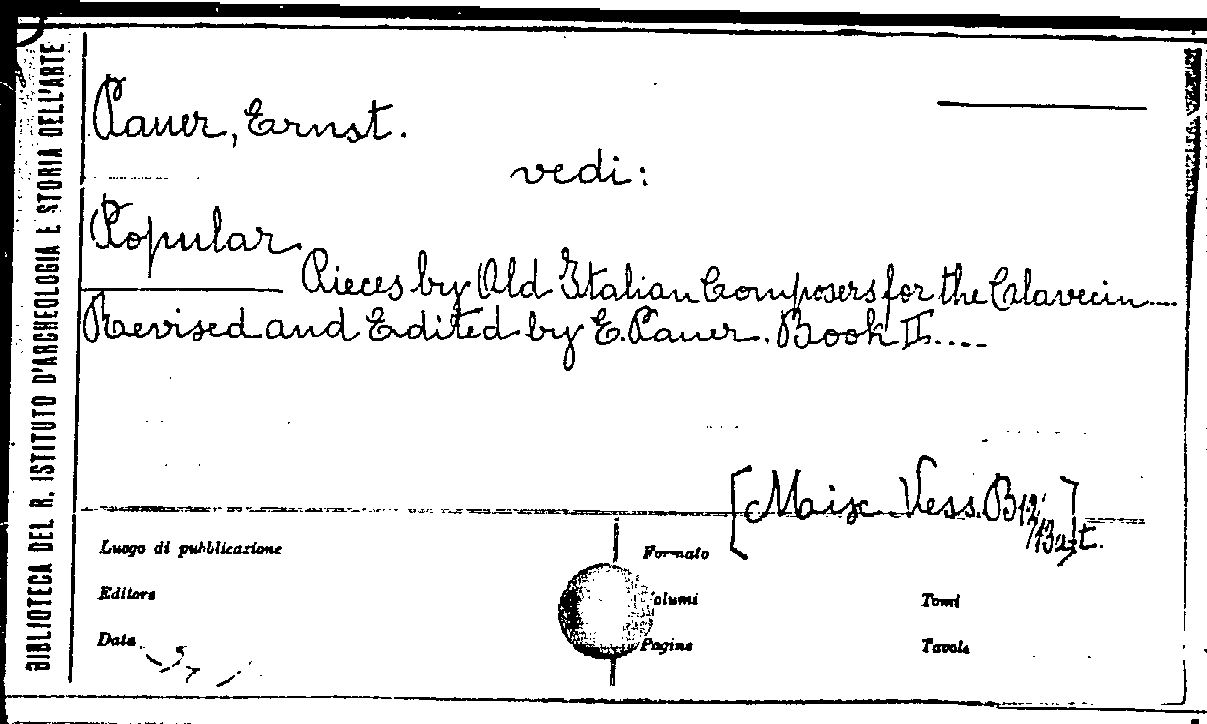 BIBLIOTECA DEL R. ISTITUTO D'ARCHEOLOGIA E STORIA DELL'ARTE
Pauer, Ernst.
vedi:
Popular
Pieces by Old Italian Composers for the Clavecin....
Revised and Edited by E. Pauer. Book II....
[Misc. Vess. B 12
Luogo di pubblicazione
Formato
Editore
Volumi
Tomi
Data
Pagine
Tavole